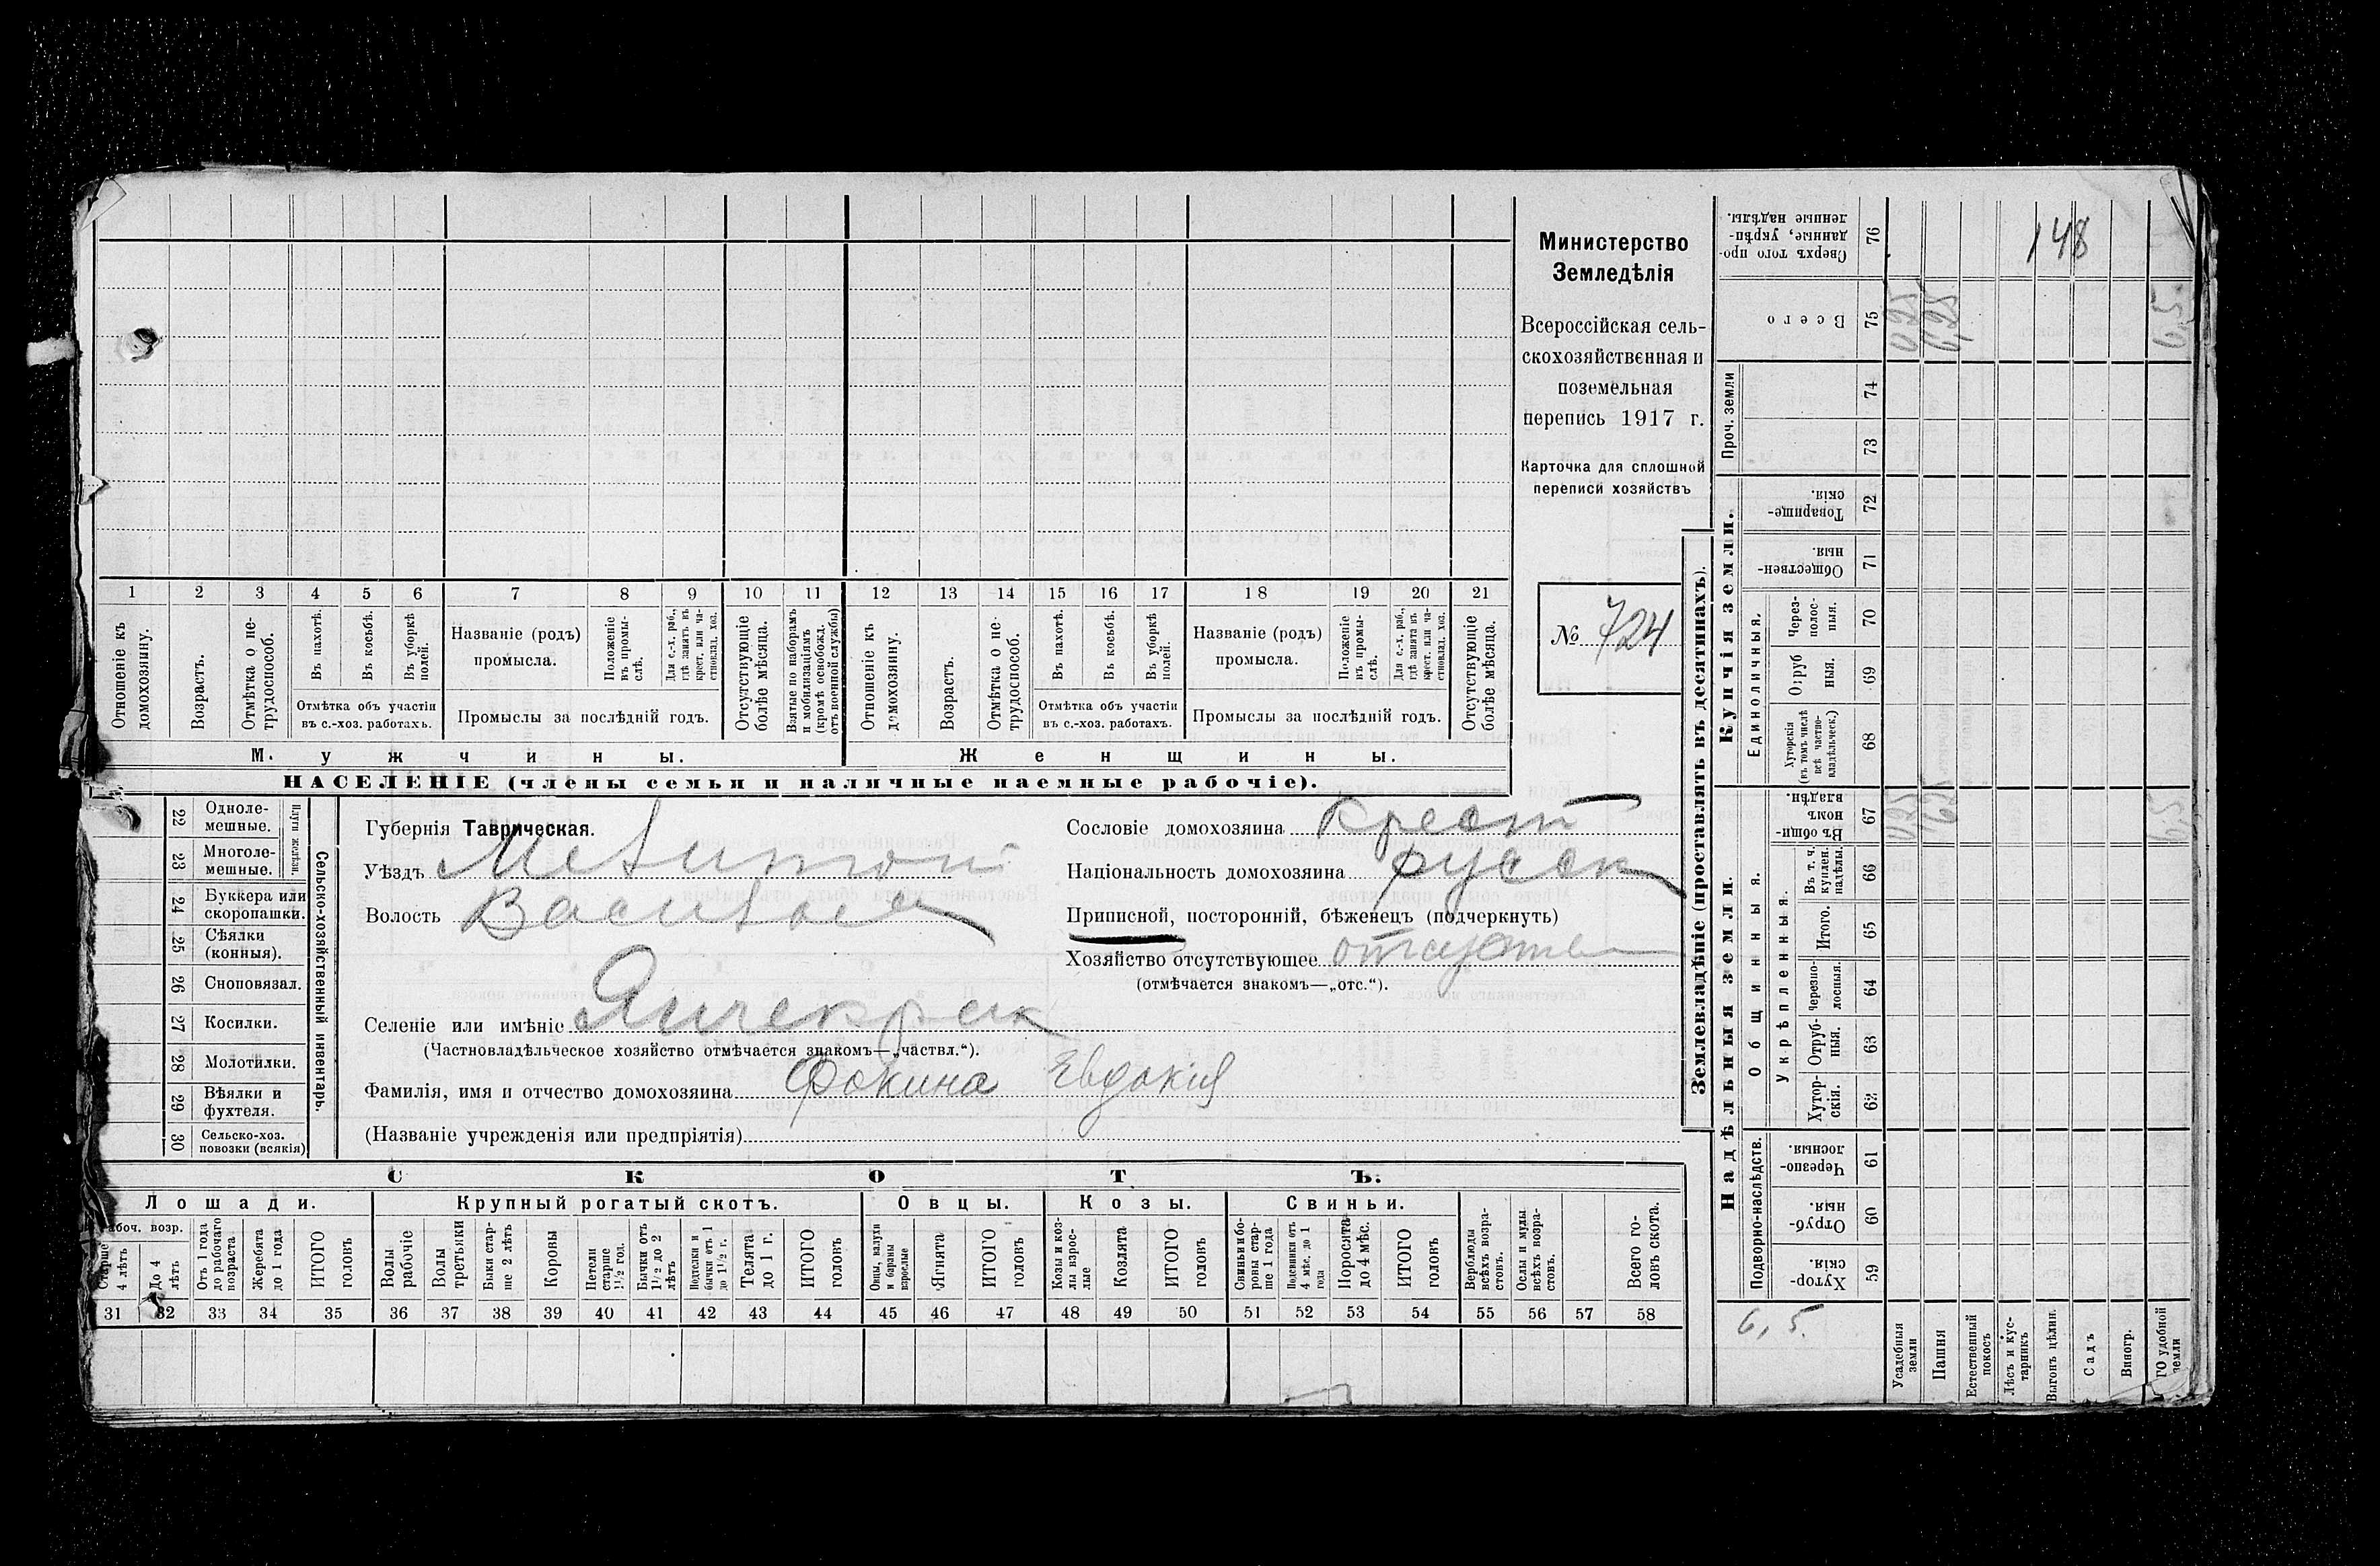 Министерство
Земледѣлія
Всероссійская сель-
скохозяйственная и
поземельная
перепись 1917 г.
Карточка для сплошной
переписи хозяйствъ
№ 724
1 2 3 4 5 6 7 8 9 10 11 12 13 14 15 16 17 18 19 20 21
Отношеніе къ домохозяину.
Возрастъ.
Отмѣтка о не-
трудоспособ.
Въ пахотѣ.
Въ косьбѣ.
Въ уборкѣ
полей.
Отмѣтка объ участіи
въ с.-хоз. работахъ.
Названіе (родъ)
промысла.
Положеніе
въ промы-
слѣ.
Для с.-х. раб.,
гдѣ занятъ въ
крест. или ча-
стновлад. хоз.
Промыслы за послѣдній годъ.
Отсутствующіе
болѣе мѣсяца.
Взятые по наборамъ
и мобилизаціямъ
(кромѣ освобожд.
отъ военной службы)
Отношеніе къ
домохозяину.
Возрастъ.
Отмѣтка о не-
трудоспособ.
Въ пахотѣ.
Въ косьбѣ.
Въ уборкѣ
полей.
Отмѣтка объ участіи
въ с.-хоз. работахъ.
Названіе (родъ)
промысла.
Положеніе
въ промы-
слѣ.
Для с.-х. раб.,
гдѣ занята въ
крест. или ча-
стновлад. хоз.
Промыслы за послѣдній годъ.
Отсутствующіе
болѣе мѣсяца.
Мужчины.
Женщины.
НАСЕЛЕНІЕ (члены семьи и наличные наемные рабочіе).
22 Одноле-
мешные.
23 Многоле-
мешные.
Плуги желѣзн.
24 Буккера или
скоропашки.
25 Сѣялки
(конныя).
26 Сноповязал.
27 Косилки.
28 Молотилки.
29 Вѣялки и
фухтеля.
30 Сельско-хоз.
повозки (всякія)
Сельско-хозяйственный инвентарь.
Губернія Таврическая.
Уѣздъ Мелитоп
Волость Васильев
Селеніе или имѣніе Янчекрак
(Частновладѣльческое хозяйство отмѣчается знакомъ—„частвл.“).
Фамилія, имя и отчество домохозяина Фокина Евдокія
(Названіе учрежденія или предпріятія)
Сословіе домохозяина крест
Національность домохозяина русск
Приписной, посторонній, бѣженецъ (подчеркнуть)
Хозяйство отсутствующее отсутств
(отмѣчается знакомъ—„отс.“).
СКОТЪ.
Лошади.
Крупный рогатый скотъ.
Овцы.
Козы.
Свиньи.
Рабоч. возр.
Старше
4 лѣтъ
До 4
лѣтъ
Отъ 1 года
до рабочаго
возраста
Жеребята
до 1 года
ИТОГО
головъ
Волы
рабочіе
Волы
третьяки
Быки стар-
ше 2 лѣтъ
Коровы
Нетели
старше
1½ год.
Бычки отъ
1½ до 2
лѣтъ
Подтелки и
бычки отъ 1
до 1½ г.
Телята
до 1 г.
ИТОГО
головъ
Овцы, валухи
и бараны
взрослые
Ягнята
ИТОГО
головъ
Козы и коз-
лы взрос-
лые
Козлята
ИТОГО
головъ
Свиньи и бо-
ровы стар-
ше 1 года
Подсвинки отъ
4 мѣс. до 1
года
Поросята
до 4 мѣс.
ИТОГО
головъ
Верблюды
всѣхъ возра-
стовъ.
Ослы и мулы
всѣхъ возра-
стовъ.
Всего го-
ловъ скота.
31 32 33 34 35 36 37 38 39 40 41 42 43 44 45 46 47 48 49 50 51 52 53 54 55 56 57 58
Землевладѣніе (проставлять въ десятинахъ).
Купчія земли.
Надѣльныя земли.
Сверхъ того про-
данные, укрѣп-
ленные надѣлы.
76
148
Всего
75
0,25
6,25
6,5
Проч. земли
74
73
Товарище-
скія.
72
Обществен-
ныя.
71
Единоличныя.
Через-
полос-
ныя.
70
Отруб
ныя.
69
Хуторскія
(въ томъ числѣ
всѣ частно-
владѣльческ.)
68
Въ общи-
номъ
владѣн.
67
0,25
6,25
6,5
Общинныя.
Укрѣпленныя.
Въ т. ч.
куплен.
надѣлы.
66
Итого.
65
Черезпо-
лосныя.
64
Отруб-
ныя.
63
Хутор-
скія.
62
Подворно-наслѣдств.
Черезпо-
лосныя.
61
Отруб-
ныя.
60
Хутор-
скія.
59
6,5.
Усадебныя
земли
Пашня
Естественный
покосъ
Лѣсъ и кус-
тарникъ
Выгонъ цѣлин.
Садъ
Виногр.
ГО удобной
земли